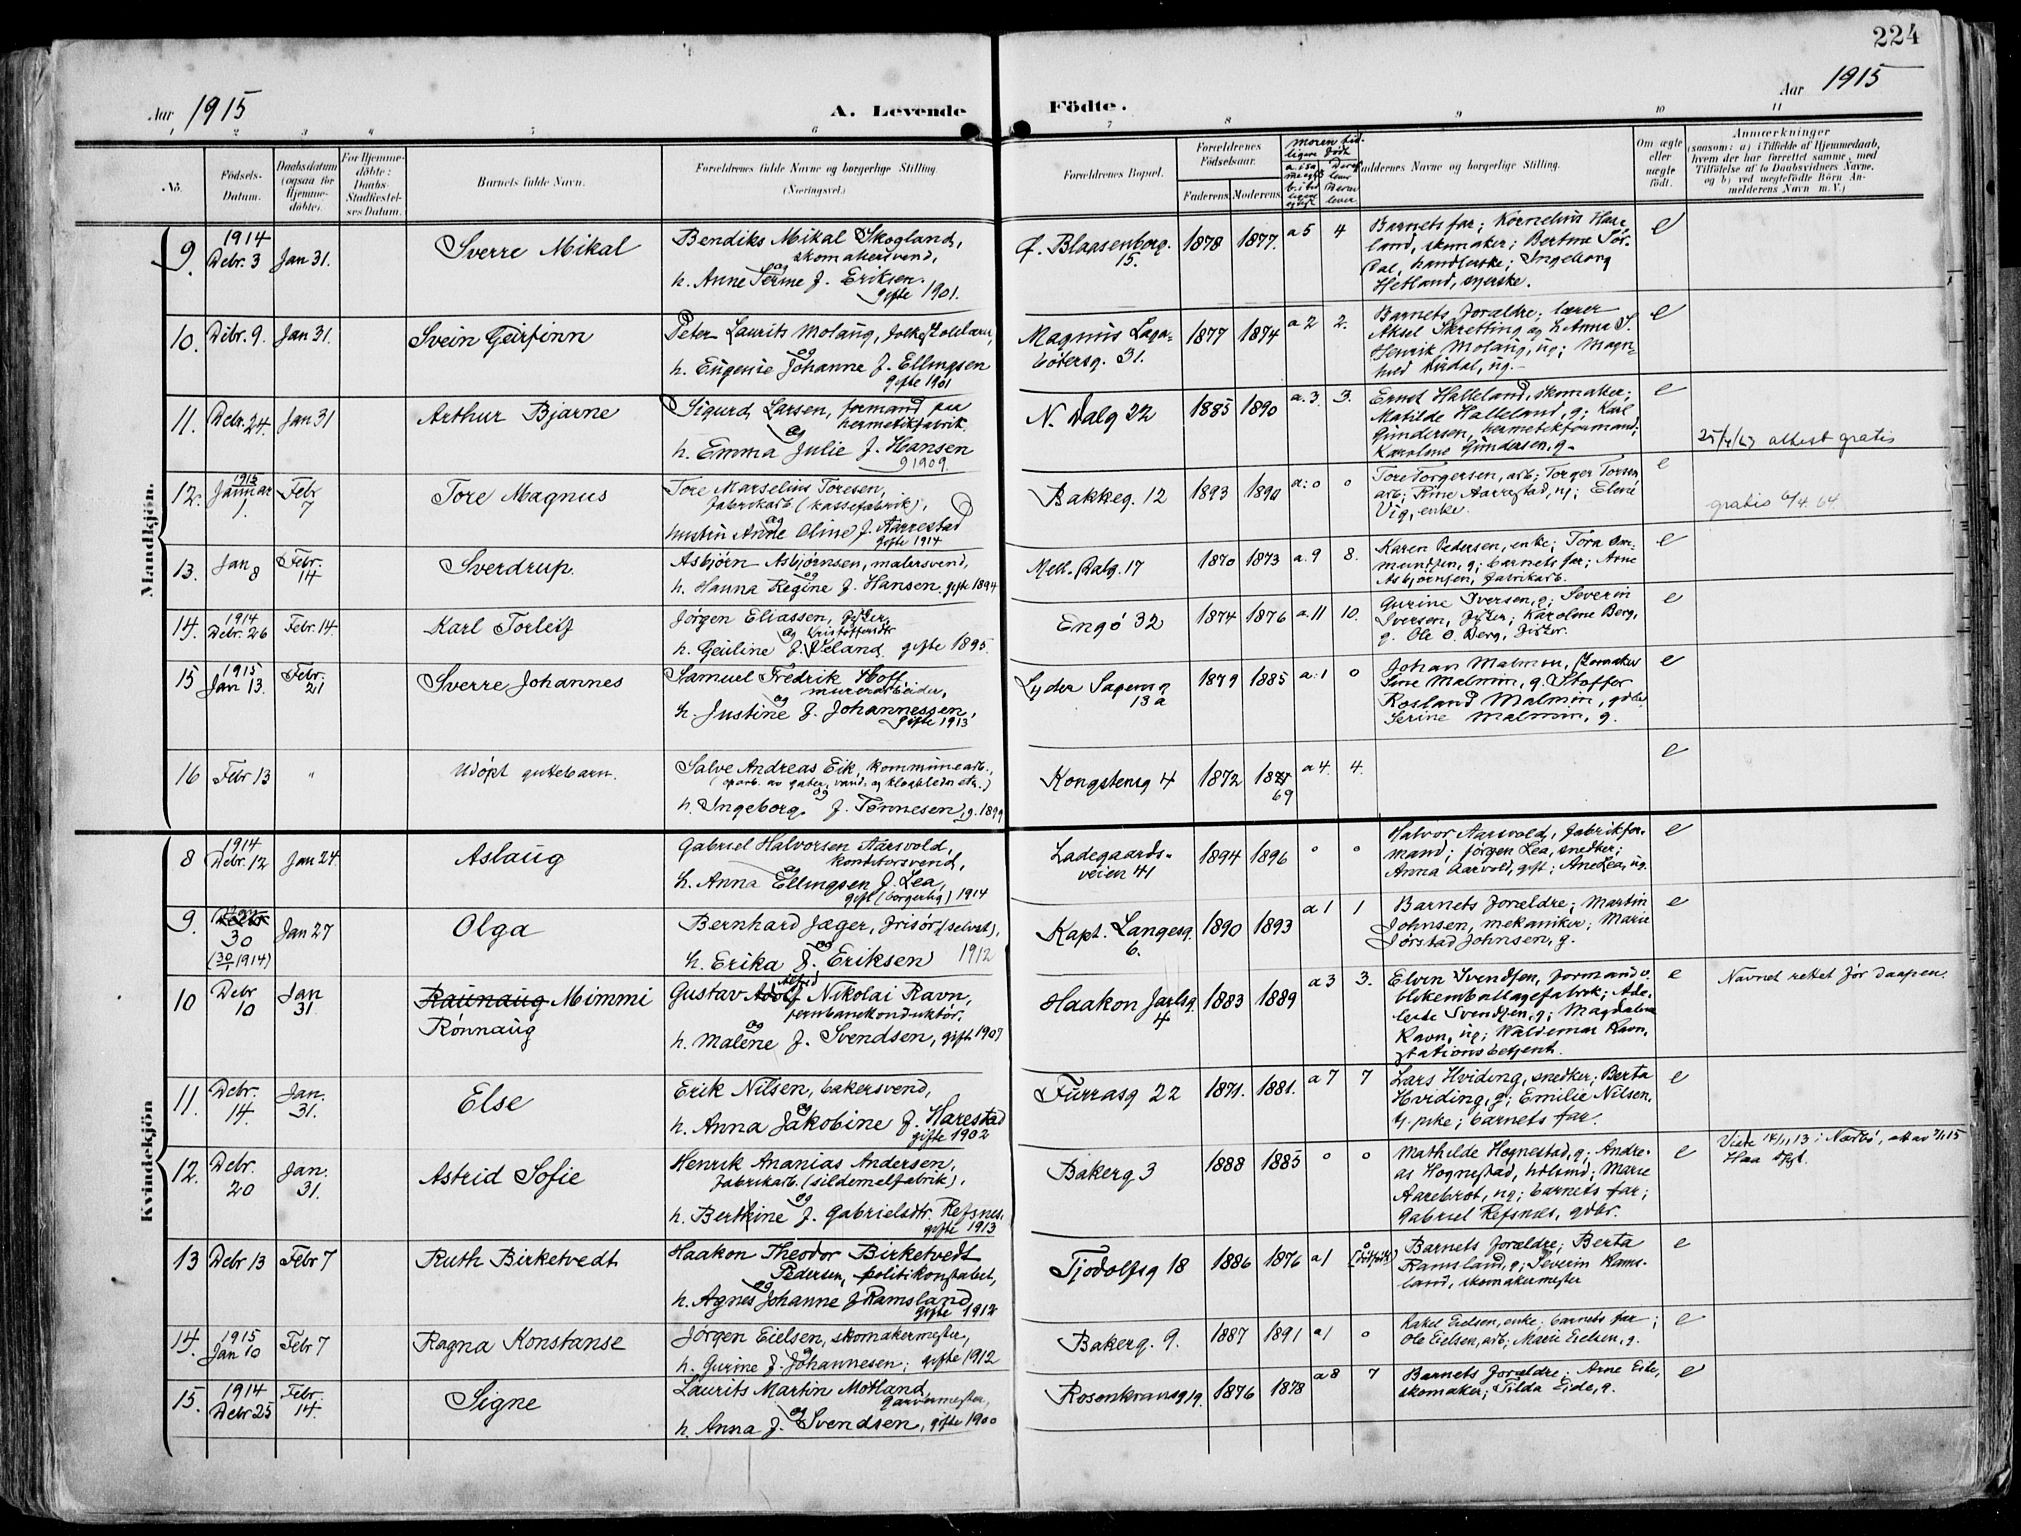 224
Aar 1915
A. Levende Födte.
Aar 1915
1 2 3 4 5 6 7 8 9 10 11
No. Födsels-Datum. Daabsdatum (ogsaa for Hjemme-döbte). For Hjemme-döbte: Daabs-Stadfæstel-ses Datum. Barnets fulde Navn. Forældrenes fulde Navne og borgerlige Stilling (Næringsvei.) Forældrenes Bopæl. Forældrenes Födselsaar. Faderens Moderens Fadderenes Navne og borgerlige Stilling. Om ægte eller uægte födt. Anmærkninger (saasom: a) i Tilfælde af Hjemmedaab, hvem der har forrettet samme, med Tilföielse af to Daabsvidners Navne, og b) ved uægtefödte Börn Anmelderens Navn m. V.)
Mandkjön.
9. 1914 Debr. 3 Jan 31. Sverre Mikal
Bendiks Mikal Skogland,
skomakersvend,
og
h. Anne Serine f. Eriksen.
gifte 1901.
Ø. Blaasenborg. 15. 1878 1877. a 5 4
Barnets far; Kornelius Hau-
land, skomaker; Bertine Sør-
dal, handlerske; Ingeborg
Hetland, syerske.
e
10. Debr. 9. Jan 31. Svein Geirfinn
Peter Laurits Molaug, folkeskolelærer,
og
h. Eugenie Johanne f. Ellingsen
gifte 1901
Magnus Laga-
bøtersg. 31. 1877 1874 a 2 2.
Barnets forældre; lærer
Aksel Skretting og h. Anna S.
Henrik Molaug, ug; Magn-
hild Aadal, ug.
e
11. Debr. 24. Jan 31 Arthur Bjarne
Sigurd Larsen, formand paa
hermetikfabrik
og
h. Emma Julie f. Hansen
g 1909.
N. Dalg 22 1885 1890 a. 3. 3.
Ernst Halleland, skomaker;
Matilde Halleland, g; Karl
Gundersen, hermetikformand;
Karoline Gundersen, g.
e
25/4/63 attest gratis
12. 1915 Januar 1. Febr 7 Tore Magnus
Tore Marselius Toresen,
fabrikarb (kassefabrik),
og
hustru Anne Oline f. Aarrestad
gifte 1914
Bakkeg. 12 1893 1890 a: 0 0
Tore Torgersen, arb; Torger Torsen
arb; Rine Aarrestad, ug; Eline
Vig, enke.
e
gratis 6/4. 64.
13. Jan 8 Febr. 14 Sverdrup.
Asbjørn Asbjørnsen, malersvend,
og
h. Hanna Regine f. Hansen. gifte 1894
Mell. Dalg. 17 1870 1873 a. 9 8.
Karen Pedersen, enke; Tora Om-
mundsen, g; barnets far; Arne
Asbjørnsen, fabrikarb.
e
14. 1914 Debr. 26 Febr. 14. Karl Torleif
Jørgen Eliassen, fisker,
og Kristoffersdtr
h. Geuline f. Veland. gifte 1895.
Engø 32 1874 1876 a. 11 10.
Gurine Iversen, g; Severin
Iversen, fisker; Karoline Berg,
g. Ole O. Berg, fisker.
e
15 1915 Jan 13. Febr. 21 Sverre Johannes
Samuel Fredrik Hoff,
murerarbeider,
og
h. Justine f. Johannessen,
gifte 1913
Lyder Sagensg
13a 1879 1885 a. 1 0
Johan Malmin, skomaker
Sine Malmin, g. Stoffer
Rosland Malmin, gdbr
Serine Malmin, g.
e
16 Febr 13 " Udøpt guttebarn.
Salve Andreas Eik, kommunearb.,
(oparb. av gater, vand. og kloakledn. etc.)
og
h. Ingeborg f. Tønnesen, g. 1899
Kongstensg 4 1872 69 a 4. 4.
e
Kvindekjön
8 1914 Debr. 12 Jan 24 Aslaug
Gabriel Halvorsen Aarsvold,
konditorsvend,
og
h. Anna Ellingsen f. Lea,
gift (borgerlig) 1914
Ladegaards-
veien 41 1894 1896 0 0
Halvor Aarsvold, fabrikfor-
mand; Jørgen Lea, snedker;
Anna Aarvold, gift; Ane Lea, ug.
e
9. 30 (30/1 1914) Jan 27 Olga
Bernhard Jæger, frisør (selvst),
og
h. Erika f. Eriksen 1912
Kapt. Langesg.
6. 1890 1893 a 1 1
Barnets forældre; Martin
Johnsen, mekaniker; Marie
Jørstad Johnsen, g.
e
10 Debr 10 Jan 31. Raunaug Mimmi
Rønnaug
Alfred
Gustav Adolf Nikolai Ravn,
jernbanekonduktør,
og
h. Malene f. Svendsen, gift 1907
Haakon Jarlsg.
4 1883 1889 a 3 3.
Elvin Svendsen, formand v.
blikemballagefabrik; Ade-
leide Svendsen, g; Magdalena
Ravn, ug; Valdemar Ravn,
stationsbetjent.
e
Navnet rettet før daapen.
11. Debr. 14. Jan. 31. Else
Erik Nilsen, bakersvend,
og
h. Anna Jakobine f. Harestad
gifte 1902
Furrasg 22 1871. 1881. a 7 7
Lars Hviding, snedker; Berta
Hviding, g; Emilie Nilsen,
enke; barnets far.
e
12. Debr. 20 Jan. 31. Astrid Sofie
Henrik Ananias Andersen,
fabrikarb. (sildemelfabrik),
og
h. Bertine f. Gabrielsdtr. Refsnes.
gifte 1913
Bakerg 3 1888 1885 0 0
Mathilde Hognestad, g; Andre-
as Hognestad, hølsmd; Marie
Aarebrot, ug; barnets far;
Gabriel Refsnæs, gdbr.
e
Viede 14/11 13 i Nærbø, att av 7/1 15
Haa spgt.
13 Debr 13 Febr 7 Ruth Birketvedt
Haakon Theodor Birketvedt
Pedersen, politikonstabel,
og
h. Agnes Johanne f Ramsland
gifte 1912
Tjodolfsg 18 1886 1876 a 1 0 (dødfødt)
Barnets forældre; Berta
Ramsland, g; Severin Rams-
land, skomakermester
e
14. 1915 Jan 10 Febr 7 Ragna Konstanse
Jørgen Eielsen, skomakermester,
og
h. Gurine f. Johannesen; gifte 1912
Bakerg. 9. 1887 1891 a 1 0
Rakel Eielsen, enke; barnets far;
Ole Eielsen, arb; Marie Eielsen, g.
e
15. 1914 Debr 25 Febr. 14. Signe
Laurits Martin Motland,
garvermester,
og
h. Anna f. Svendsen, gifte 1900
Rosenkransg 19. 1876 1878 a 8 7
Barnets forældre; Arne Eide,
skomaker; Tilda Eide, g.
e